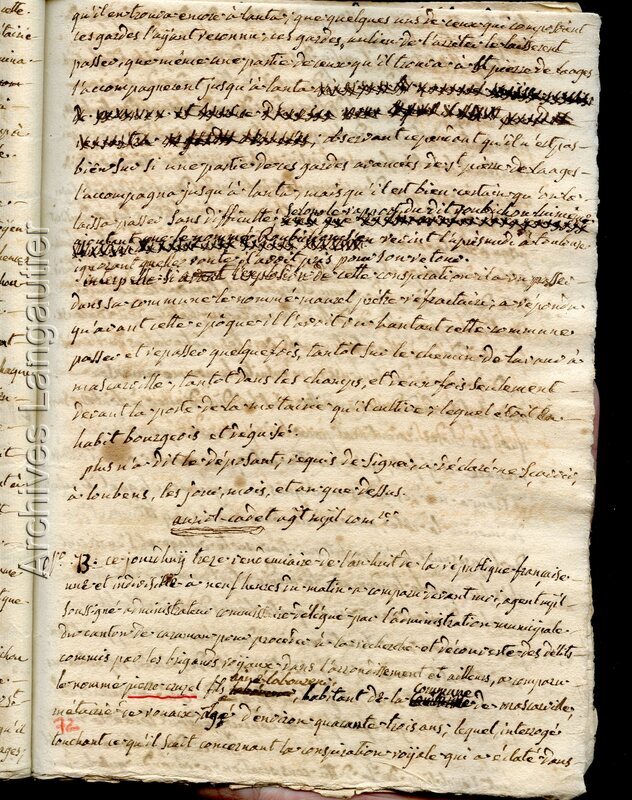 qu'il en trouva encore à lanta, que quelques uns de ceux qui composoient
ces gardes l'ayant reconnu, ces gardes, au lieu de l'arrêter le laisserent
passer, que même une partie de ceux qu'il trouva à St pierre de Lages
l'accompagnerent jusqu'à lanta
observant cependant qu'il n'est pas
bien sur si une partie de ces gardes avancées de St pierre de Lages
l'accompagna jusqu'à lanta, mais qu'il est bien certain qu'on le
laissa passer sans difficulté
revint l'après midi à toulouse
ignorant quelle route d'avoit pris pour son retour.
interpellé si avant l'explosion de cette conspiration il a vu passer
dans sa commune le nommé pretre réfractaire, a répondu
qu'avant cette époque il l'avoit vu hantant cette commune
passer et repasser quelquefois, tantot sur le chemin de lavaur à
mascarville, tantot dans les champs, et deux fois seulement
devant la porte de la métairie qu'il cultive, lequel étoit en
habit bourgeois et déguisé.
plus n'a dit le déposant, requis de signer, a déclaré ne scavoir,
à loubens, les jour, mois, et an que dessus.
auriol-cadet agt mpl com.re
B. ce jourdhuy treze vendemiaire de l'an huit de la république française
une et indivisible à neuf heures du matin a comparu devant moi, agent mpl
soussigné administrateur commissaire délégué par l'administration municipale
du canton de caraman pour procéder à la recherche et découverte des délits
commis par les brigands royaux dans l'arrondissement et ailleurs, a comparu
le nommé pierre fils habitant de la commune de mascarville
métairie age d'environ quarante trois ans; lequel interrogé
touchant ce qu'il scait concernant la conspiration royale qui a éclaté dans
72
Archives Langautier